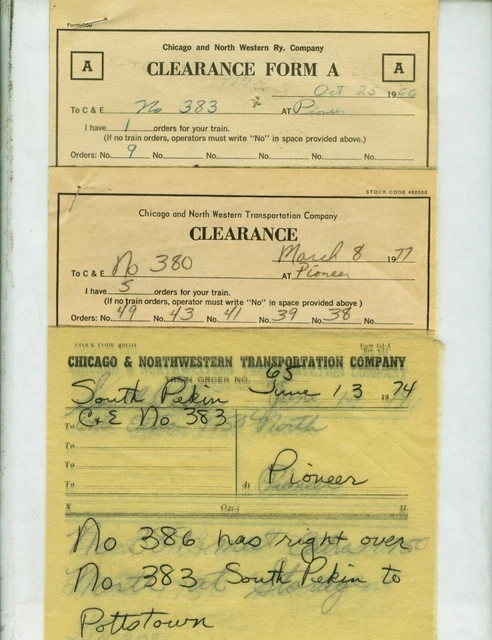 Chicago and North Western Ry. Company
A CLEARANCE FORM A A
Oct 25 1966
To C & E No 383 AT Pioneer
I have 1 orders for your train.
(If no train orders, operators must write "No" in space provided above.)
Orders: No. 9 No. No. No. No. No.
STOCK CODE 492000
Chicago and North Western Transportation Company
CLEARANCE
March 8 1977
To C & E No 380 AT Pioneer
I have 5 orders for your train.
(If no train orders, operator must write "No" in space provided above)
Orders: No. 49 No. 43 No. 41 No. 39 No. 38 No.
STOCK CODE
CHICAGO & NORTHWESTERN TRANSPORTATION COMPANY
TRAIN ORDER NO. 65
South Pekin June 13 1974
To C&E No 383
To
To
To
To At Pioneer
X Opr. M.
No 386 has right over
No 383 South Pekin to
Pottstown